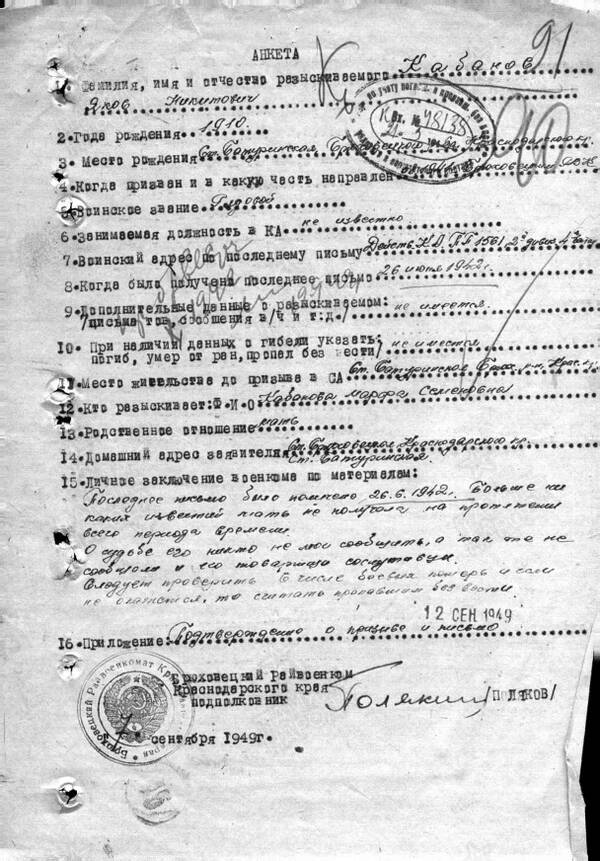 91
АНКЕТА
1. Фамилия, имя и отчество разыскиваемого Кабаков
Яков Никитович
Вх. № 48138
2. Года рождения 1910.
3. Место рождения Ст. Батуринская Брюховецкого Краснодарского кр.
4. Когда призван и в какую часть направлен Брюховецким РВК
5. Воинское звание Рядовой
6. Занимаемая должность в КА не известно
7. Воинский адрес по последнему письму Действ. К.А. ПП 1561 2й дивиз. 4й бат.
8. Когда было получено последнее письмо 26 июня 1942 г.
9. Дополнительные данные о разыскиваемом: не имеется.
/письма тов. сообщения в/ч и т.д./
10. При наличии данных о гибели указать: не имеется
погиб, умер от ран, пропал без вести/
11. Место жительства до призыва в СА Ст. Батуринская Брюх. р-н. Крас. к.
12. Кто разыскивает: Ф И О Кабакова Марфа Семеновна
13. Родственное отношение мать
14. Домашний адрес заявителя Ст. Брюховецкая Краснодарского кр.
ст. Батуринская.
15. Личное заключение военкома по материалам:
Последнее письмо было 26.6.1942 г. Больше ни
каких известий мать не получала на протяжении
всего периода времени.
О судьбе его никто не мог сообщить, а так же не
сообщали и его товарищи сослуживцы.
Следует проверить в числе боевых потерь и если
не окажется, то считать пропавшим без вести.
12 СЕН 1949
16. Приложение: Подтверждение о призыве и письмо
Брюховецкий Райвоенкомат Краснодарского края
Броховецкий Райвоенком
Краснодарского края
подполковник Поляков /ПОЛЯКОВ/
7 сентября 1949г.